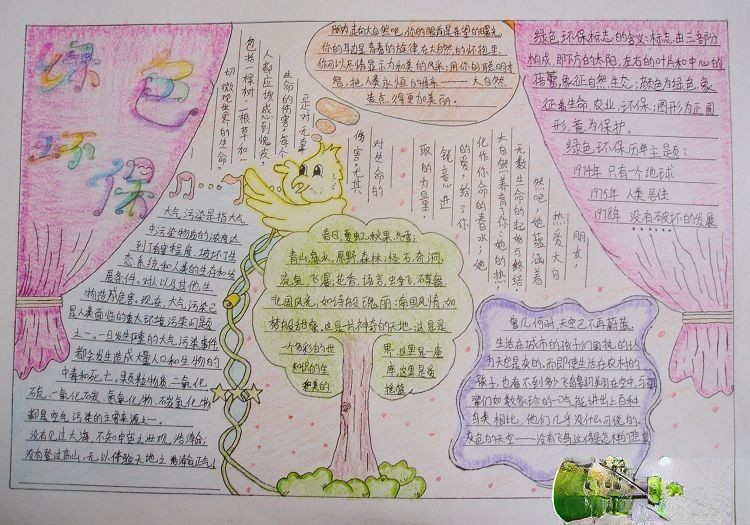 绿色
环保
朋友,走向大自然吧,你的眼前是希望的曙光
你的耳边是青春的旋律,在大自然的怀抱里
你可以尽情显示力和美的风采,用你的聪明才
大自然
造点得更加美丽。
绿色环保标志的含义:标志由三部分
构成,即下方的太阳、左右的叶片和中心的
蓓蕾,象征自然生态;颜色为绿色,象
征着生命、农业、环保;图形为正圆
形,意为保护。
绿色环保历年主题:
1974年 只有一个地球
1975年 人类居住
1978年 没有破坏的发展
是对元寡
生命的伤害,每个
人都应该感到愧疚,
包括一棵树、一根草和一
切微观世界的生命。
朋友,
热爱大自
然吧,她蕴涵着
无数生命的起始与终结,
大自然养育了你,她的热,
化作你命的春水;她
的爱,给了你
锐意进
取的力量。
对生命的
伤害,尤其
大气污染是指大气
中污染物质的浓度达
到了有害程度,破坏了生
态系统和人类的生存和发
展条件,对人以及其他生
物造成危害。现在,大气污染已
是人类面临的重大环境污染问题
之一。一旦发生严重的大气污染事件
都会发生造成大量人口和生物的
中毒和死亡。
硫、一氧化碳、氮氧化物、碳氢化物
都是空气污染的主要来源之一。
没有见过大海,不知宇宙之壮观、浩瀚;
没有登过高山,无以体验天地之
春日,夏虹,秋果,冬雪;
青山,绿水,原野,森林,怪石,奇洞,
流泉,飞瀑,花香,语言,虫争飞,
北国风光,如诗般瑰丽;南国风情,如
梦般甜蜜,这是一片神奇的天地,这是
一个多彩的世 界,这里是一座
知识的宝 库,这里是爱
和美的 摇篮
曾几何时,天空已不再蔚蓝,
生活在城市的孩子们固执的认
为天空是灰的,而即使生活在农村的
孩子,也看不到多少飞鸟闪翔在空中,
辈们如数家珍的一口气能讲出上百种
鸟类相比,他们几乎没什么可说的。
灰色的天空——没有飞鸟,这将是怎样的悲哀